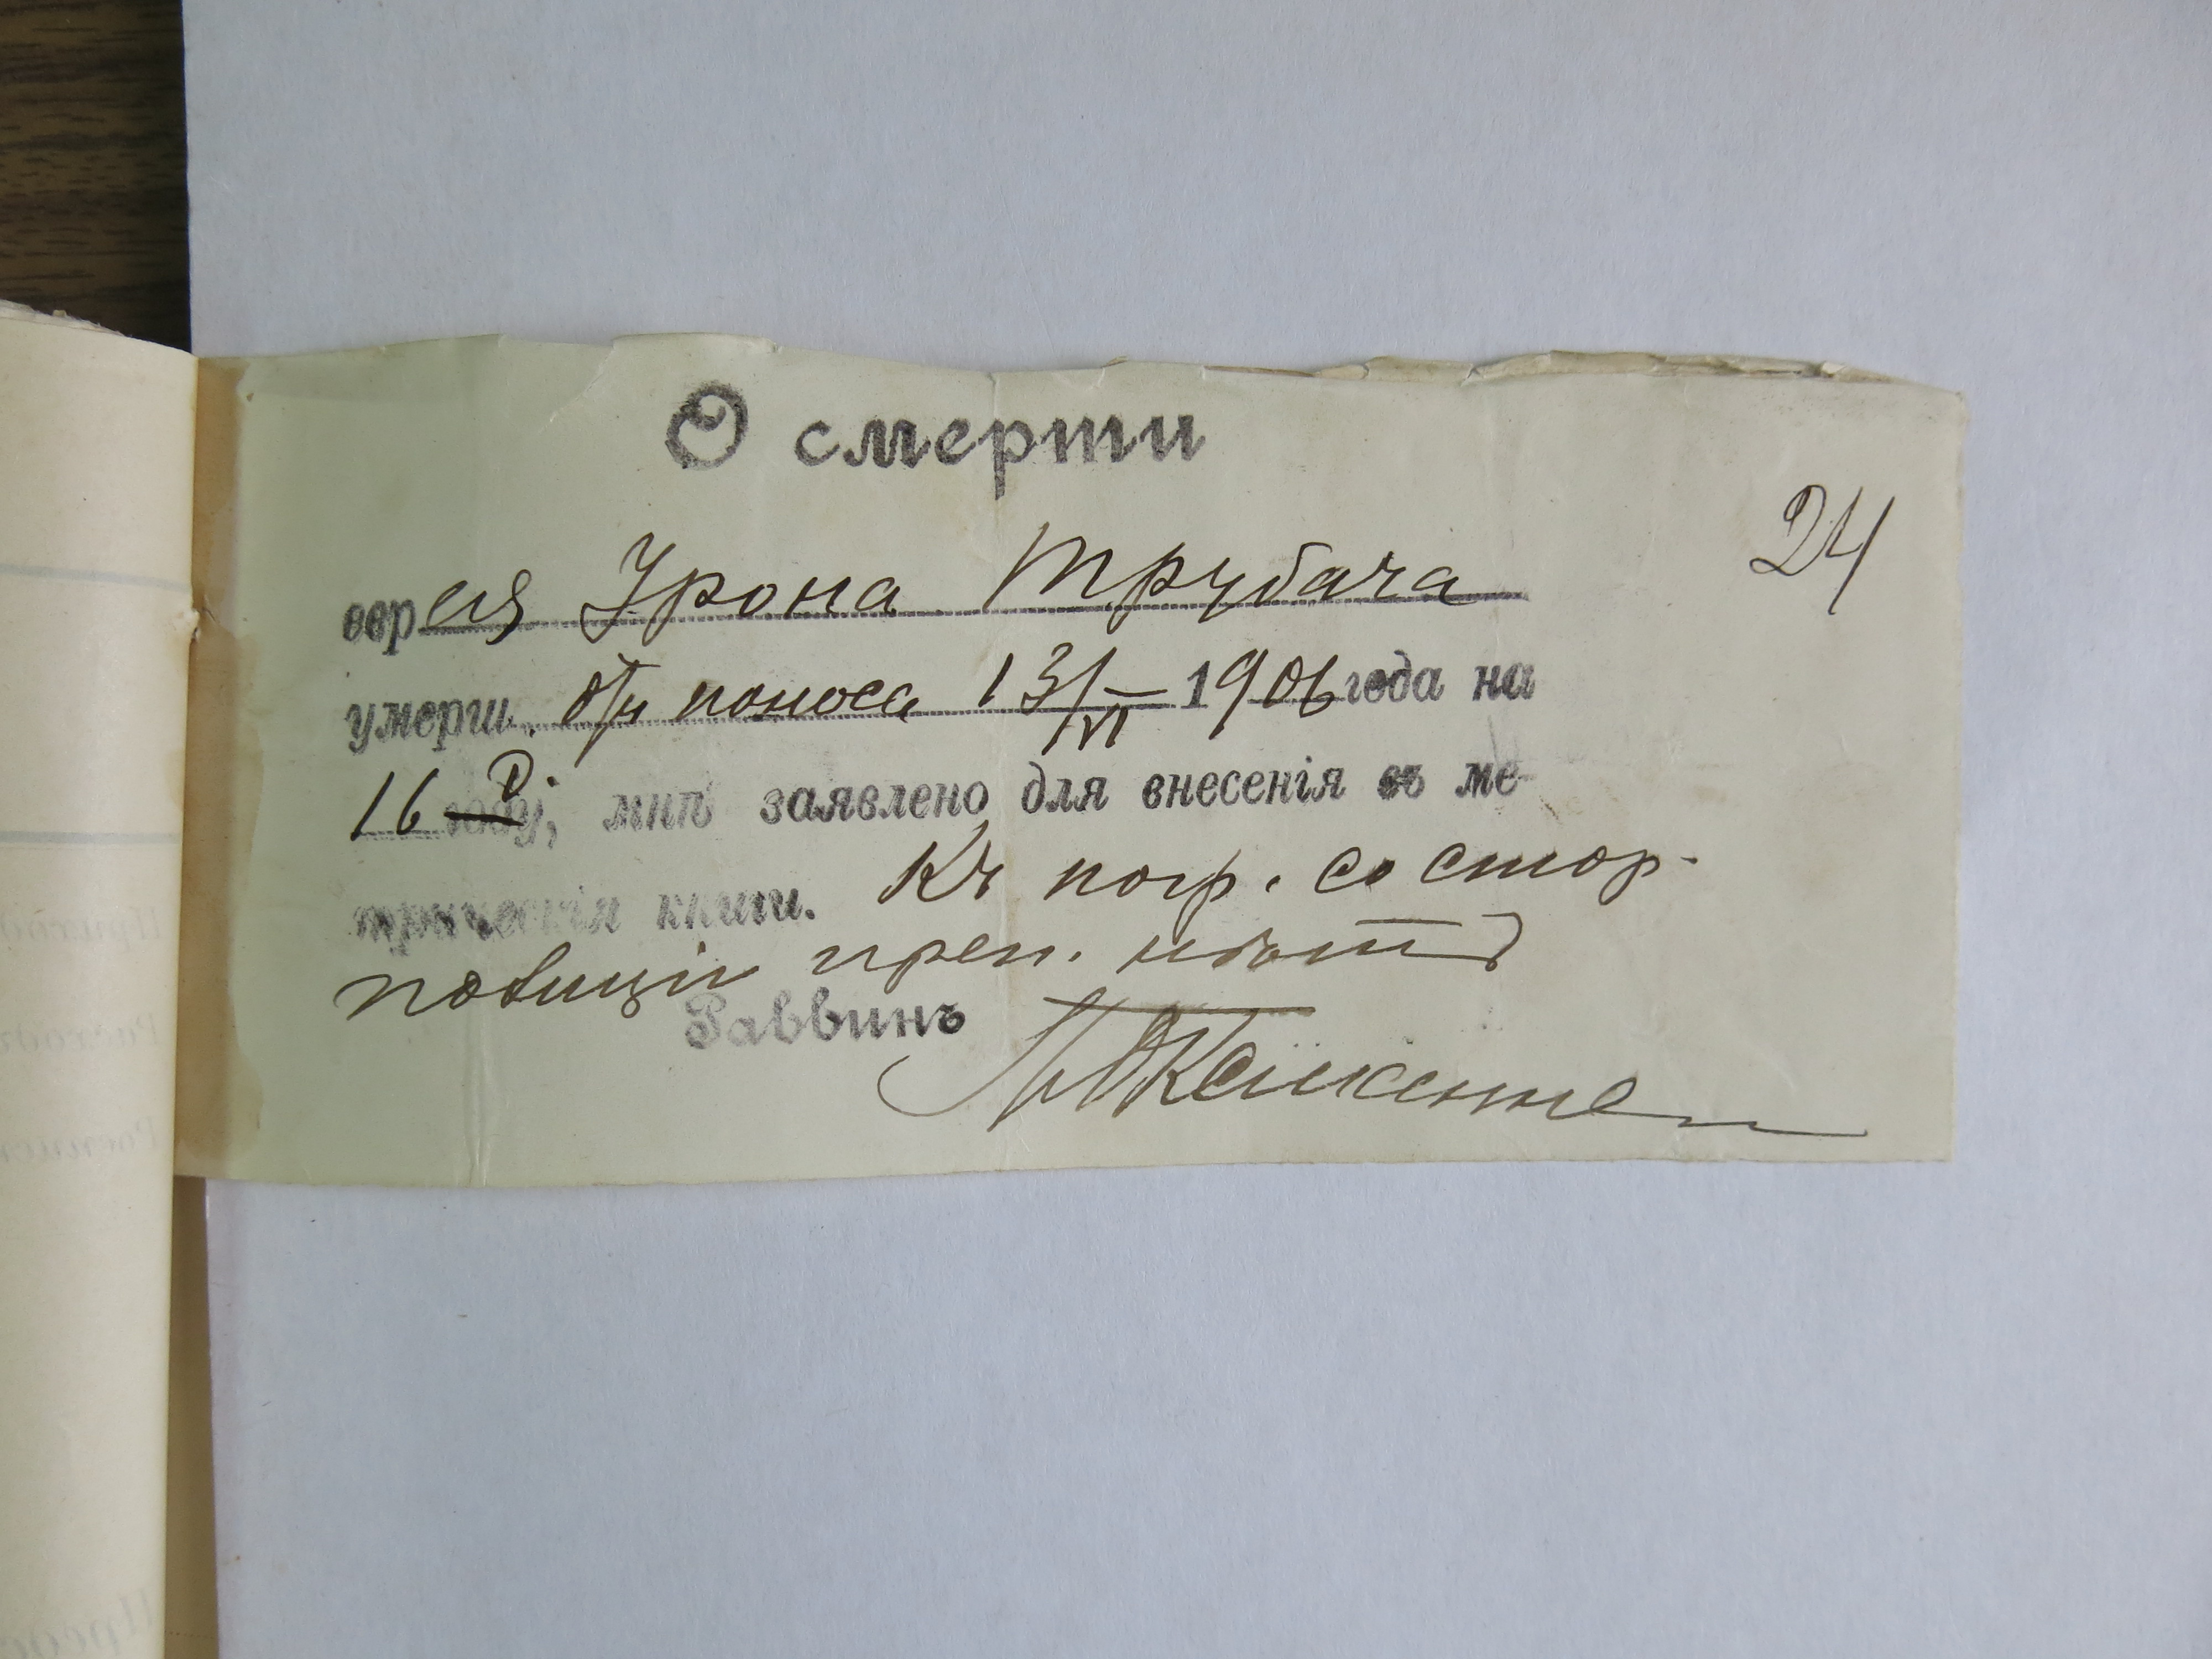 О смерти
24
еврея Урона Трубача
умерш. отъ поноса 13/VI 1906 года на
16 году, д. мнѣ заявлено для внесенія въ ме-
трическія книги. Къ погр. со стор.
полиціи преп. нѣтъ
Раввинъ